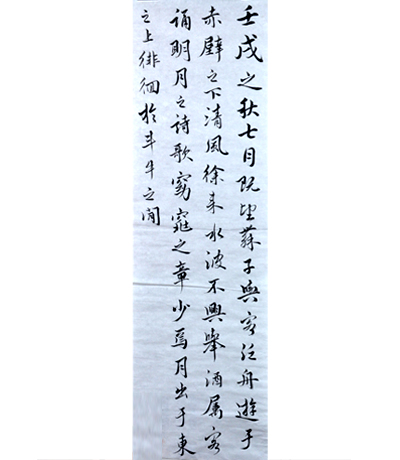 壬戌之秋七月既望蘇子與客泛舟遊于
赤壁之下清風徐来水波不興舉酒屬客
誦明月之詩歌窈窕之章少焉月出于東
之上徘徊於斗牛之間